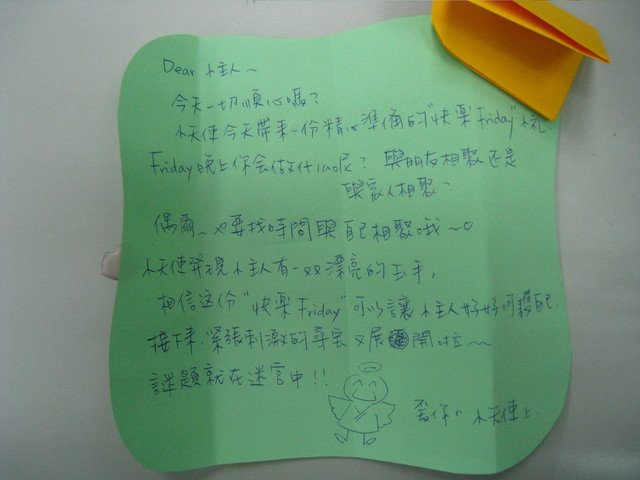 Dear 小主人~
今天一切順心嗎?
小天使今天帶來一份精心準備的"快樂Friday"小禮
Friday晚上你會做什麼呢? 與朋友相聚還是
與家人相聚?
偶爾~也要找時間與自己相聚哦~
小天使發現小主人有一双漂亮的玉手,
相信这份"快樂Friday"可以讓小主人好好呵護自己
接下來,緊張刺激的尋寶又展開啦~~
謎題就在迷宮中!!
愛你的小天使上